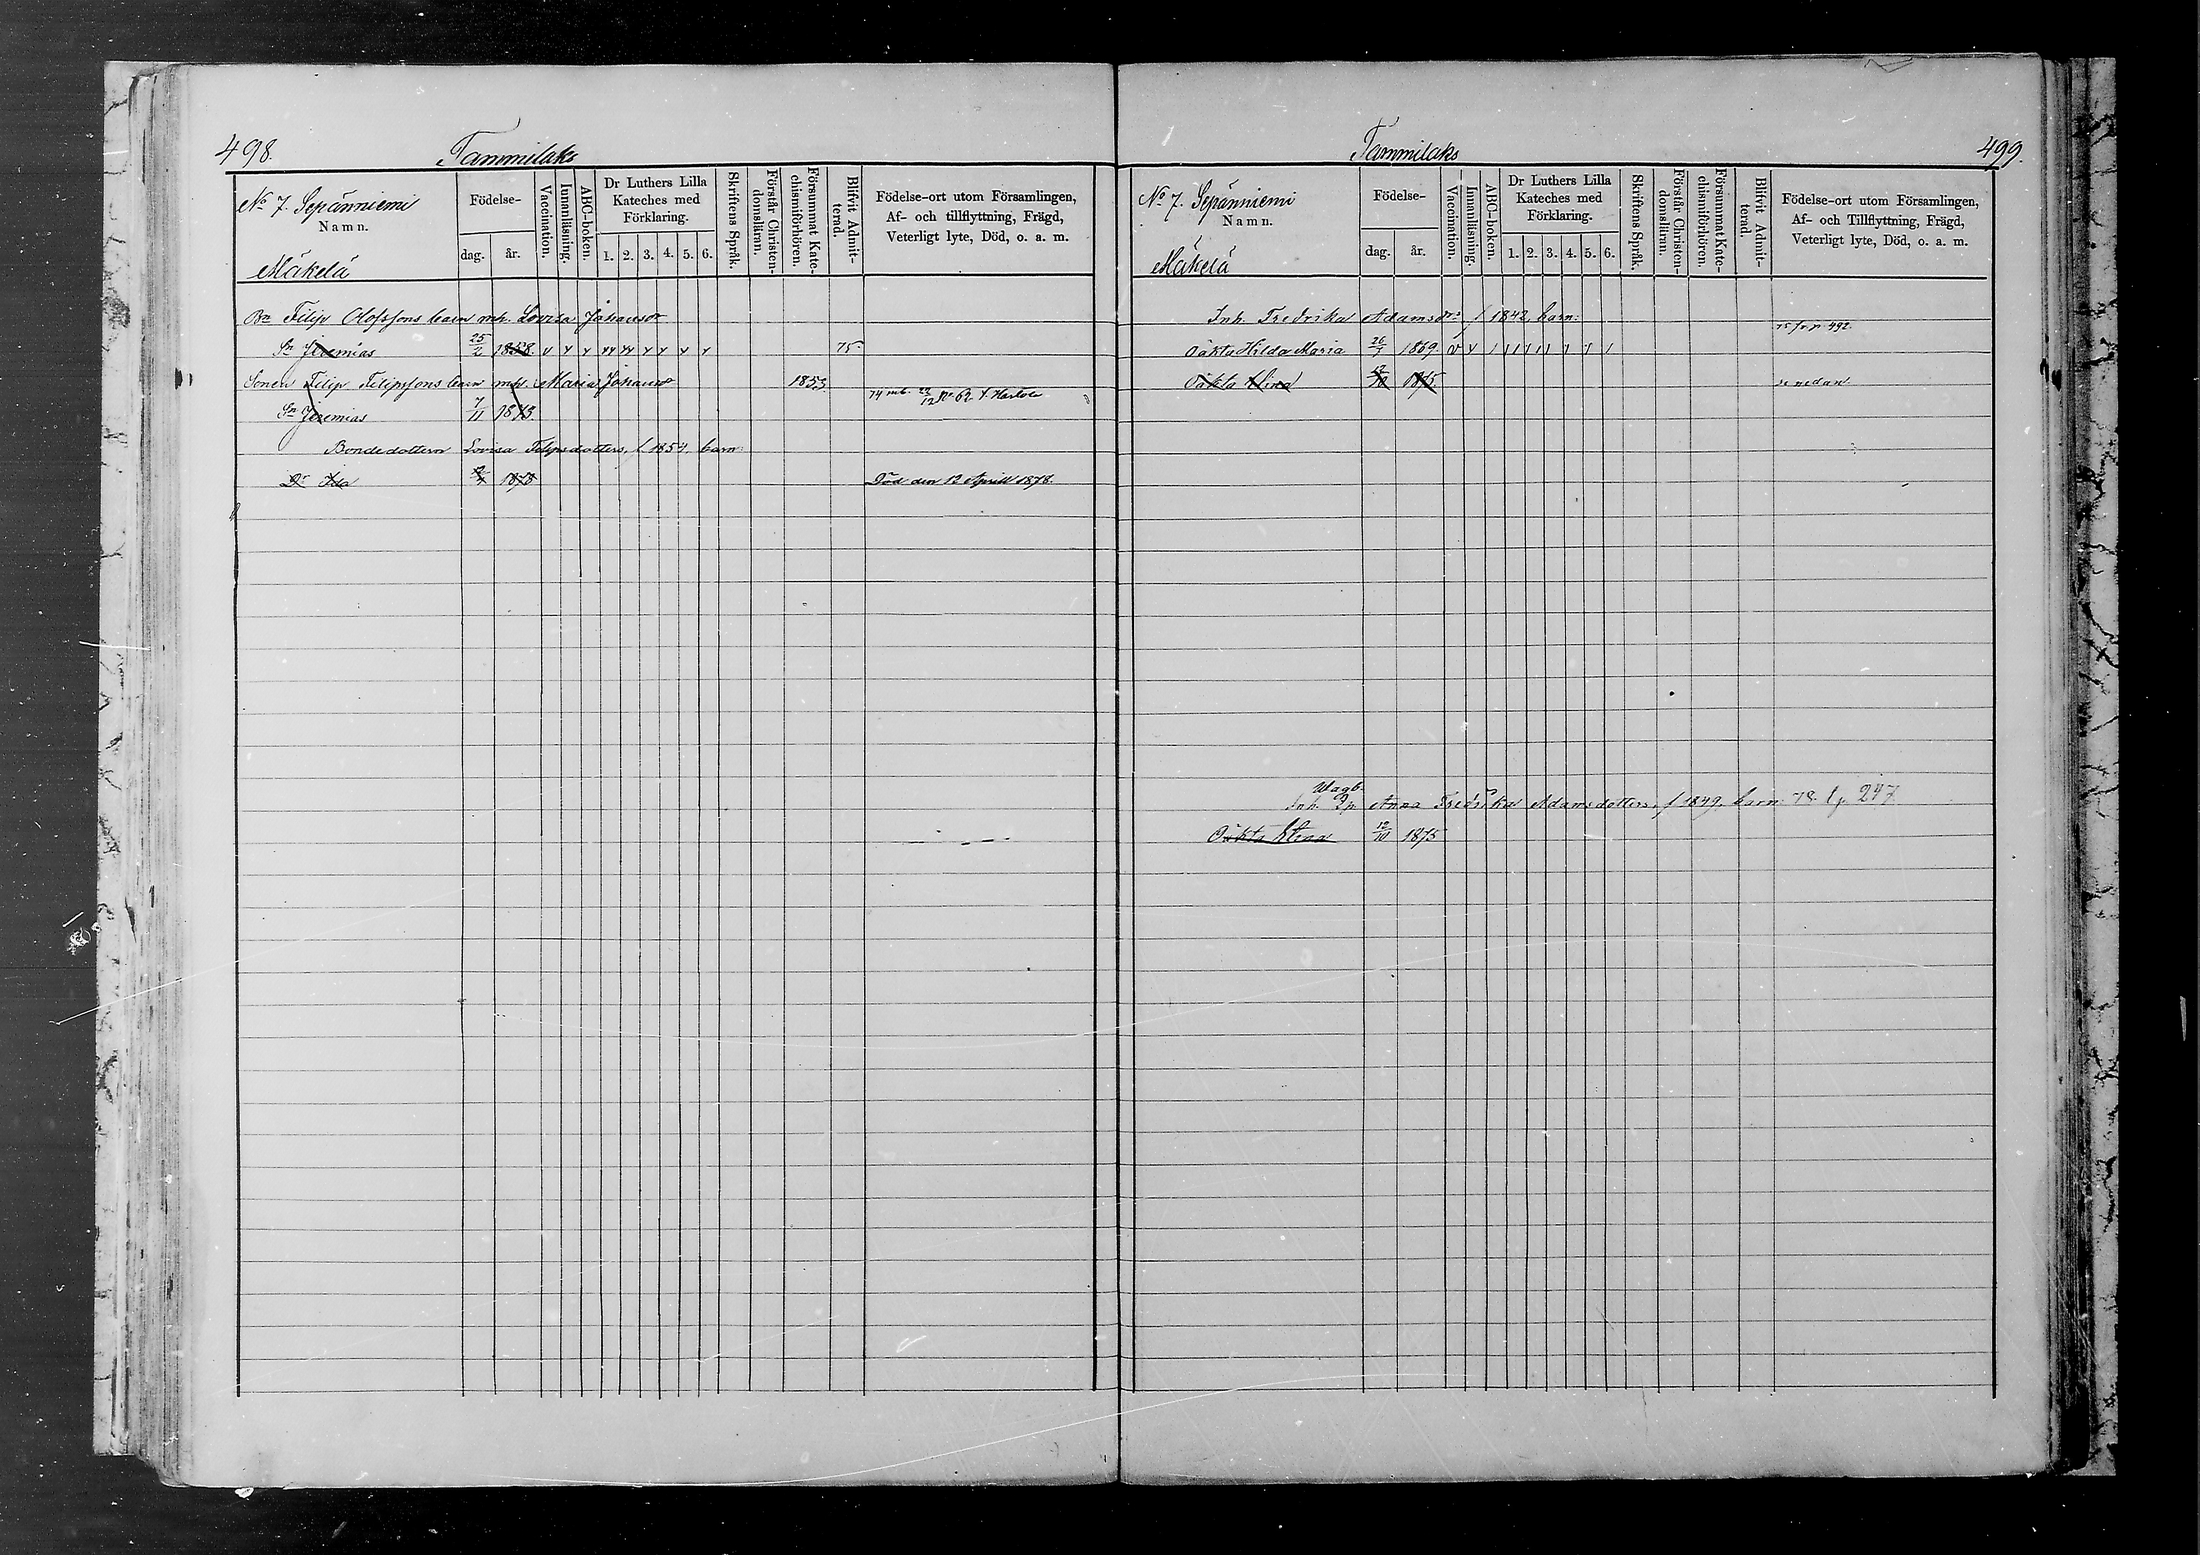 498.
Tammilaks
No 7. Sepänniemi
Namn.
Mäkelä
Födelse-
dag.
år.
Vaccination.
Innanläsning.
ABC-boken.
Dr Luthers Lilla Kateches med Förklaring.
1. 2. 3. 4. 5. 6.
Skriftens Språk.
Förstår Christendomsläran.
Försummat Katechismiförhören.
Blifvit Admitterad.
Födelse-ort utom Församlingen,
Af- och tillflyttning, Frägd,
Veterligt lyte, Död, o. a. m.
Bn Filip Olofssons barn mh. Lovisa Johansdr
Sn Jeremias 25/2 1858. v v v vv vv v v v v 75
Sonen Filip Filipssons barn mh. Maria Johansdr 1853
Sn Jeremias 7/11 1873 74 mb. 22/12 No 62 t. Hartola
Bondedottern Lovisa Filipsdotters, f. 1854, barn:
Dr Ida 1878 Död den 12 April 1878.
499.
Tammilaks
No 7. Sepänniemi
Namn.
Mäkelä
Födelse-
dag.
år.
Vaccination.
Innanläsning.
ABC-boken.
Dr Luthers Lilla Kateches med Förklaring.
1. 2. 3. 4. 5. 6.
Skriftens Språk.
Förstår Christendomsläran.
Försummat Katechismiförhören.
Blifvit Admitterad.
Födelse-ort utom Församlingen,
Af- och Tillflyttning, Frägd,
Veterligt lyte, Död, o. a. m.
Inh. Fredrika Adamsdrs f 1842, barn:
75 fr. p. 492.
Oäkta Hilda Maria 26/7 1869. v v
Oäkta Stina 12/10 1875 se nedan
Inh. Anna Fredrika Adamsdotters, f 1849, barn: 78. t p. 247
Oäkta Stina 12/10 1875